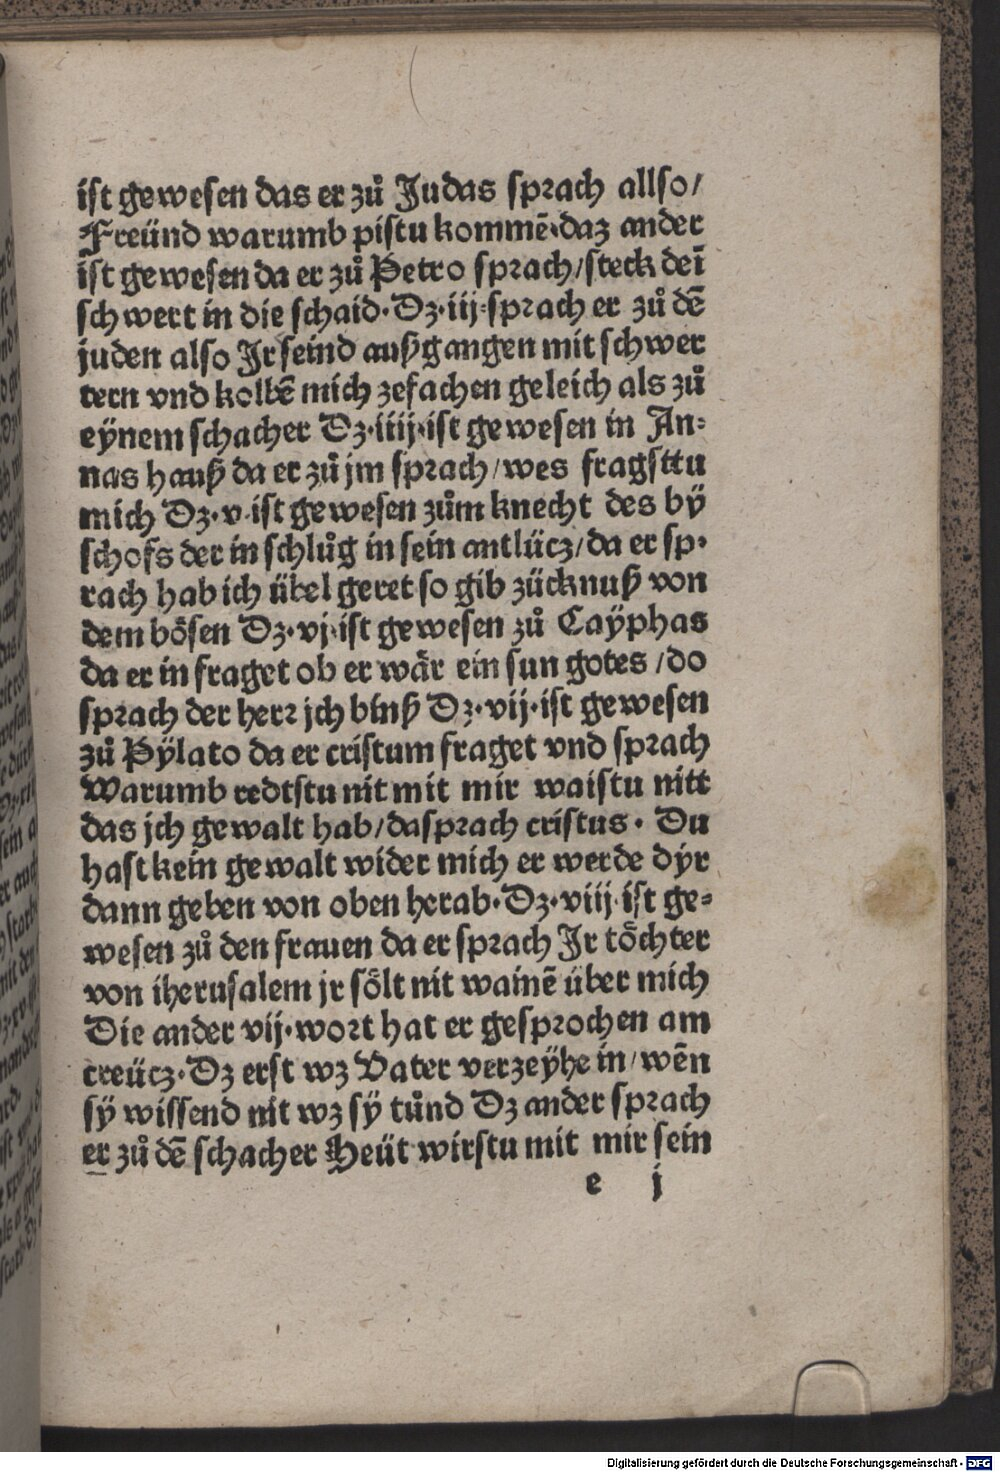 ist gewesen das er zů Judas sprach allso/
Freünd warumb pistu kommē·daz ander
ist gewesen da er zů Petro sprach/steck deī
schwert in die schaid·Dz·iij·sprach er zů dē
juden also Jr seind außgangen mit schwer
tern vnd kolbē mich zefachen geleich als zů
eÿnem schacher Dz·iiij·ist gewesen in An⸗
nas hauß da er zů jm sprach/wes fragsttu
mich Dz·v·ist gewesen zům knecht des bÿ
schofs der in schlůg in sein antlücz/da er sp·
rach hab ich übel geret so gib zücknuß von
dem bösen Dz·vj·ist gewesen zů Caÿphas
da er in fraget ob er wär ein sun gotes /do
sprach der herr jch binß Dz·vij·ist gewesen
zů Pÿlato da er cristum fraget vnd sprach
Warumb redtstu nit mit mir waistu nitt
das jch gewalt hab/dasprach cristus· Du
hast kein gewalt wider mich er werde dyr
dann geben von oben herab·Dz·viij·ist ge⸗
wesen zů den frauen da er sprach Jr töchter
von iherusalem jr sölt nit wainē über mich
Die ander vij·wort hat er gesprochen am
creücz·Dz erst wz Vater verzeÿhe in/wēn
sÿ wissend nit wz sÿ tůnd Dz ander sprach
er zů dē schacher Heüt wirstu mit mir sein
e j
Digitalisierung gefördert durch die Deutsche Forschungsgemeinschaft - DFG